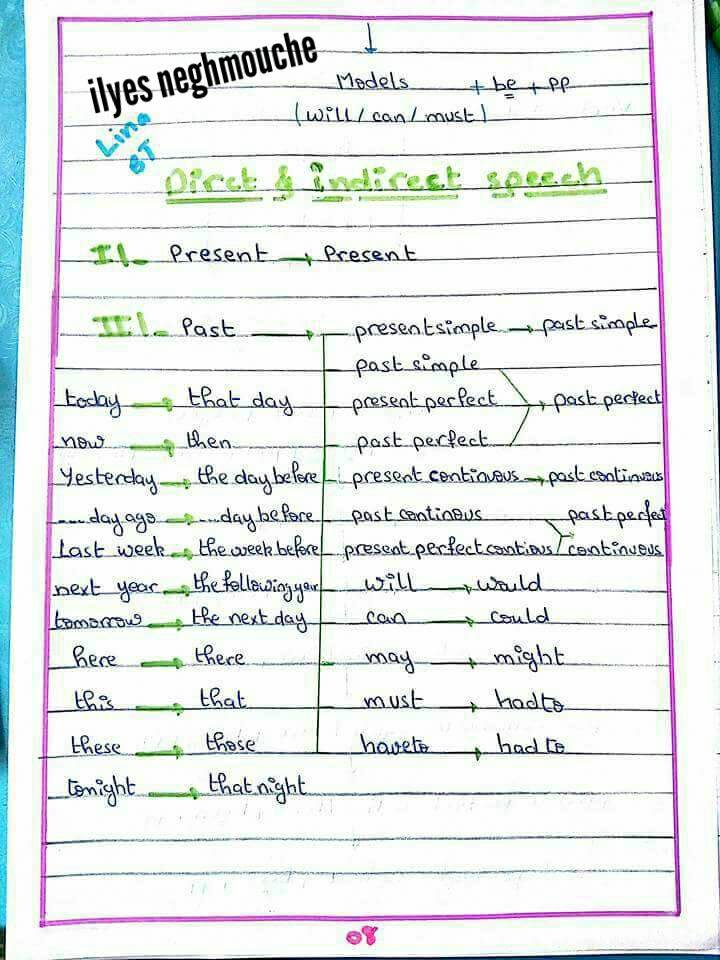 ilyes neghmouche
Models + be + pp
(will / can / must)
Lina
BT
Dirct & indirect speech
I I. Present → Present
III. Past → present simple → past simple
past simple
today → that day present perfect → past perfect
now → then past perfect
Yesterday → the day before present continuous → past continuous
....day ago → ....day before past continous past perfect
Last week → the week before present perfect contious continuous
next year → the following year will → would
tomorrow → the next day can → could
here → there may → might
this → that must → had to
these → those have to → had to
tonight → that night
08